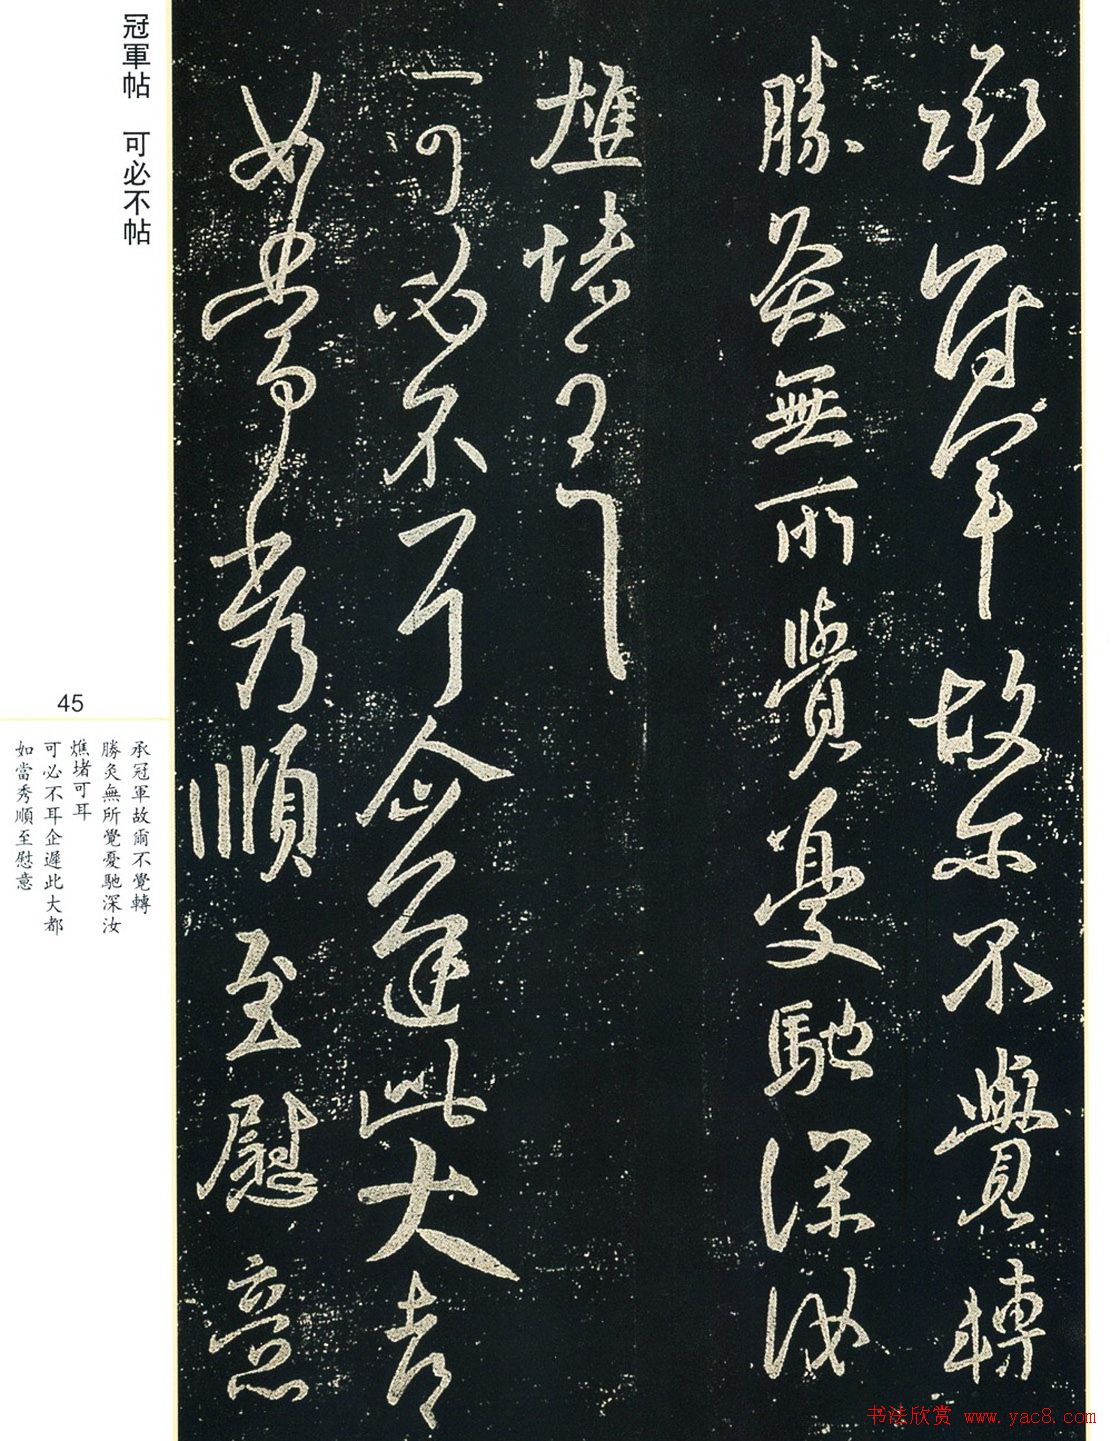 冠軍帖　可必不帖
承冠軍故爾不覺轉
勝灸無所覺憂馳深汝
燋堵可耳
可必不耳企遲此大都
如當秀順至慰意
45
承冠軍故爾不覺轉
勝灸無所覺憂馳深汝
燋堵可耳
可必不耳企遲此大都
如當秀順至慰意
书法欣赏 www.yac8.com